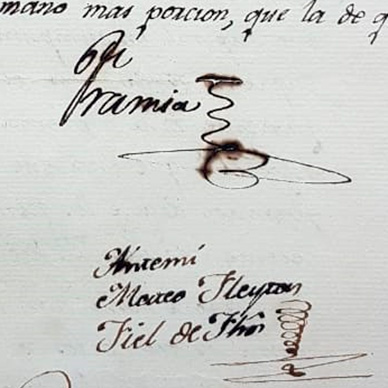 mano mas porcion, que la de q
Pramia
Antemi
Mateo Fleytas
Fiel de fhos